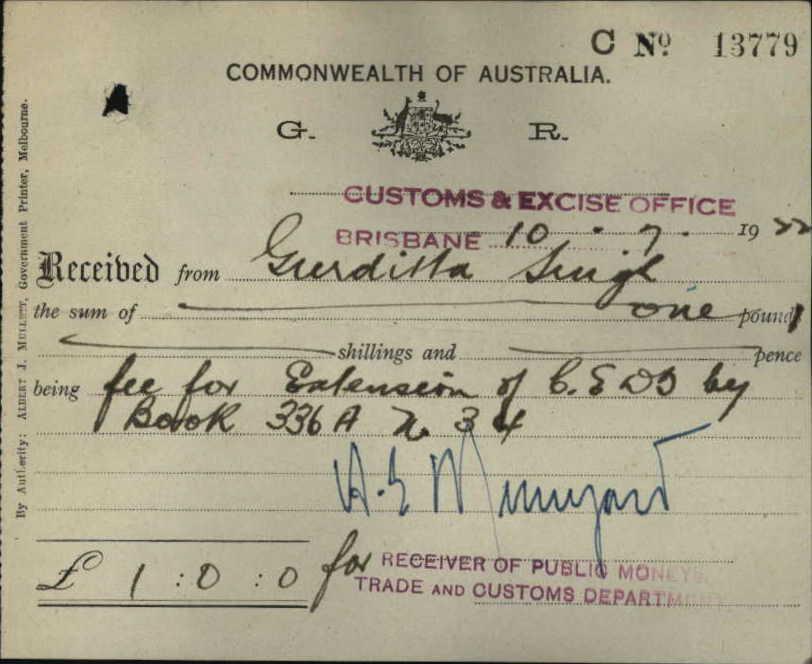 C Nº 13779
COMMONWEALTH OF AUSTRALIA.
G. R.
CUSTOMS & EXCISE OFFICE
BRISBANE 10 . 7 . 1922
Received from Gurditta Singh
the sum of one pound
shillings and pence
being fee for Extension of C.E.D.T by
Book 336 A No 34
£ 1 : 0 : 0 for RECEIVER OF PUBLIC MONEYS.
TRADE AND CUSTOMS DEPARTMENT.
By Authority: ALBERT J. MULLETT, Government Printer, Melbourne.